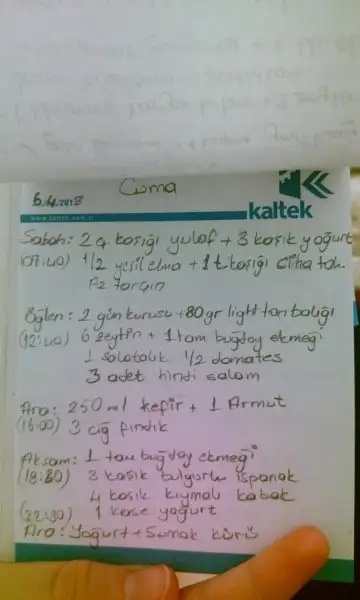 Cuma
6/4/2018
kaltek
Sabah: 2 ç. kaşığı yulaf + 3 kaşık yoğurt
(07:40) 1/2 yeşil elma + 1 t. kaşığı Ciha toh.
tarçın
Öğlen: 2 gün kurusu + 80 gr light ton balığı
(12:40) 6 zeytin + 1 tam buğday ekmeği
1 salatalık 1/2 domates
3 adet hindi salam
Ara: 250 ml kefir + 1 Armut
(16:00) 3 çiğ fındık
Akşam: 1 tam buğday ekmeği
(18:30) 3 kaşık bulgurlu ıspanak
4 kaşık kıymalı kabak
(22:00) 1 kase yoğurt
Ara: Yoğurt + Sumak kürü